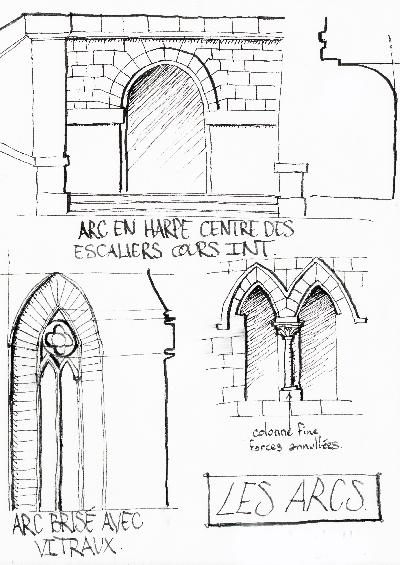 ARC EN HARPE CENTRE DES
ESCALIERS COURS INT.
colonne fine
forces annullées.
LES ARCS.
ARC BRISÉ AVEC
VITRAUX.